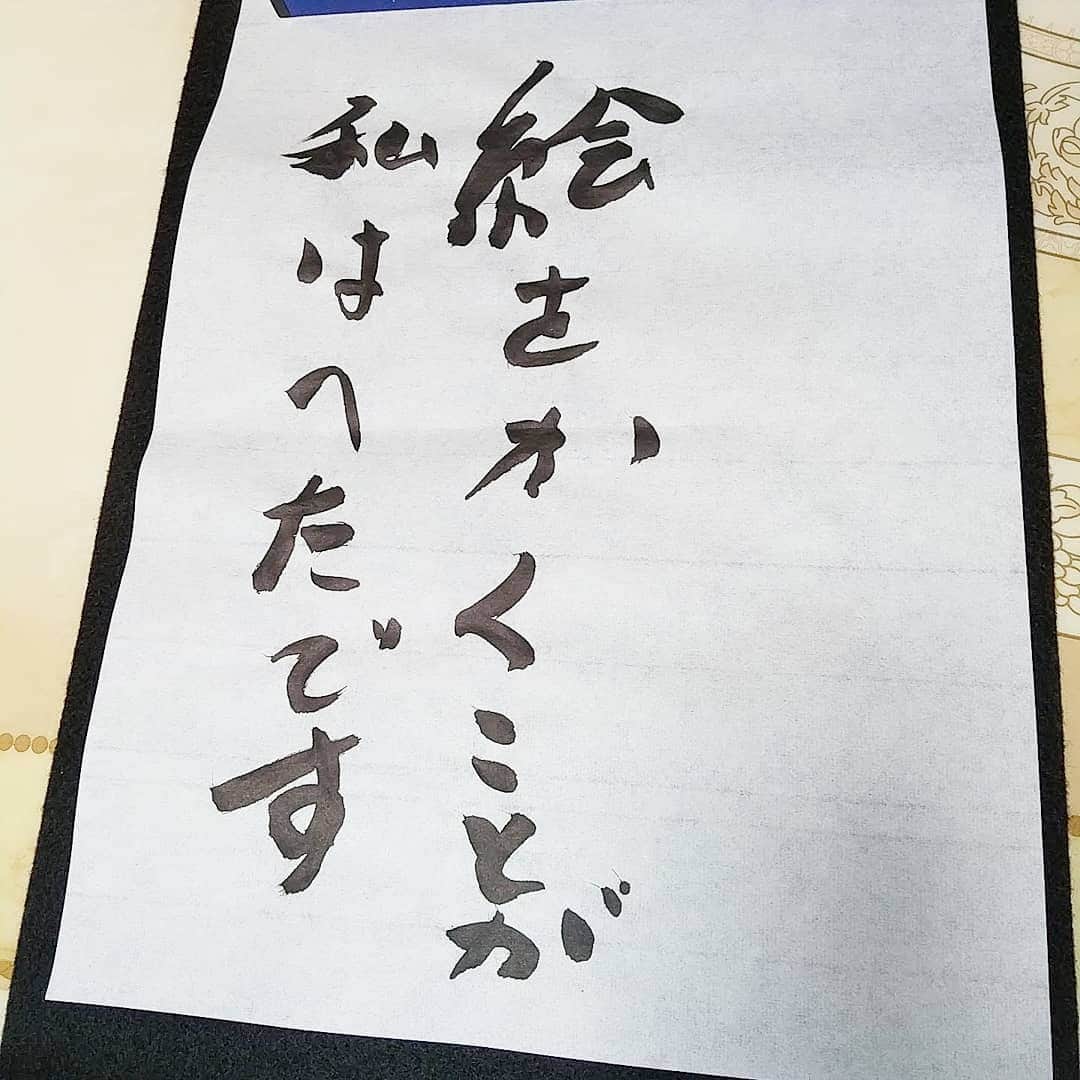 絵をかくことが
私はへたです